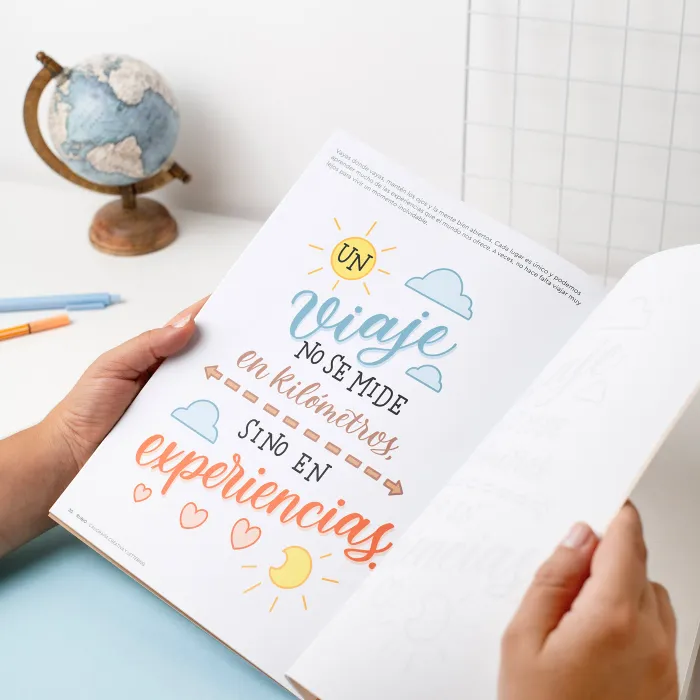 Vayas donde vayas, mantén los ojos y la mente bien abiertos. Cada lugar es único y podemos
aprender mucho de las experiencias que el mundo nos ofrece. A veces, no hace falta viajar muy
lejos para vivir un momento inolvidable.
UN
Viaje
NO SE MIDE
en kilómetros,
SINO EN
experiencias.
RUBIO